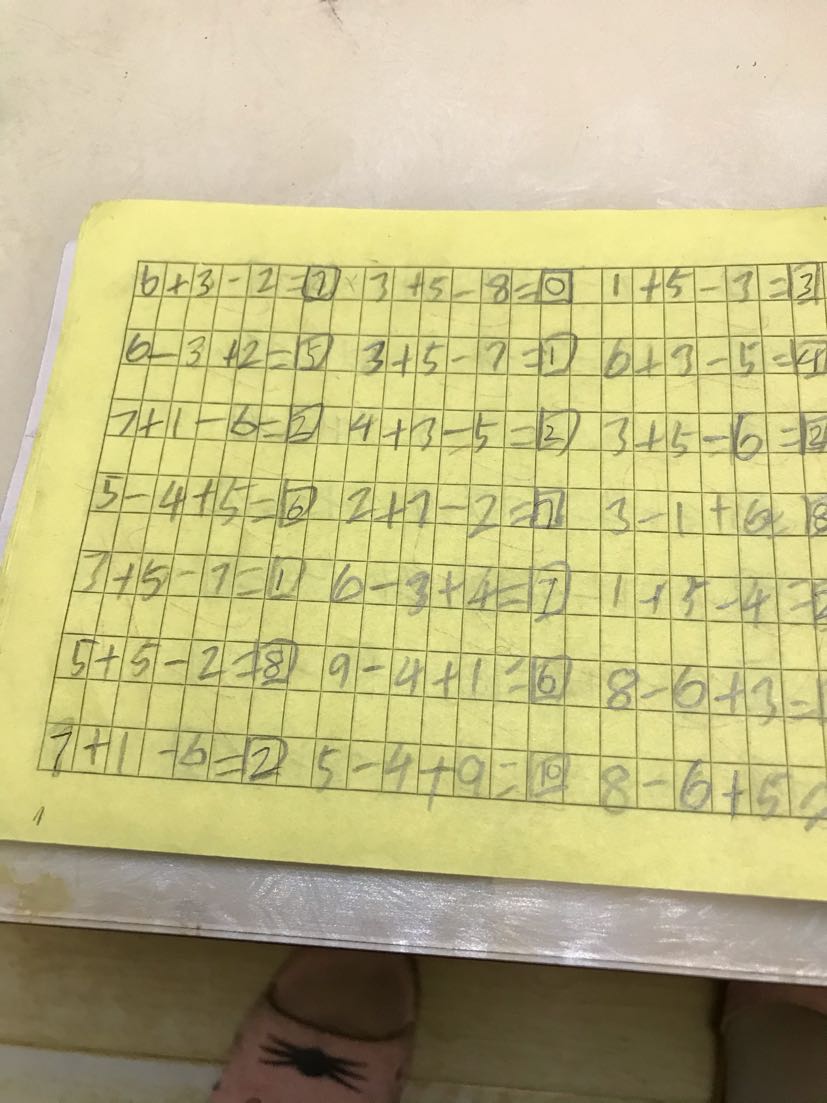 6+3-2=7 3+5-8=0 1+5-3=3
6-3+2=5 3+5-7=1 6+3-5=4
7+1-6=2 4+3-5=2 3+5-6=2
5-4+5=6 2+7-2=7 3-1+6=8
3+5-7=1 6-3+4=7 1+5-4=2
5+5-2=8 9-4+1=6 8-6+3=
7+1-6=2 5-4+9=10 8-6+5